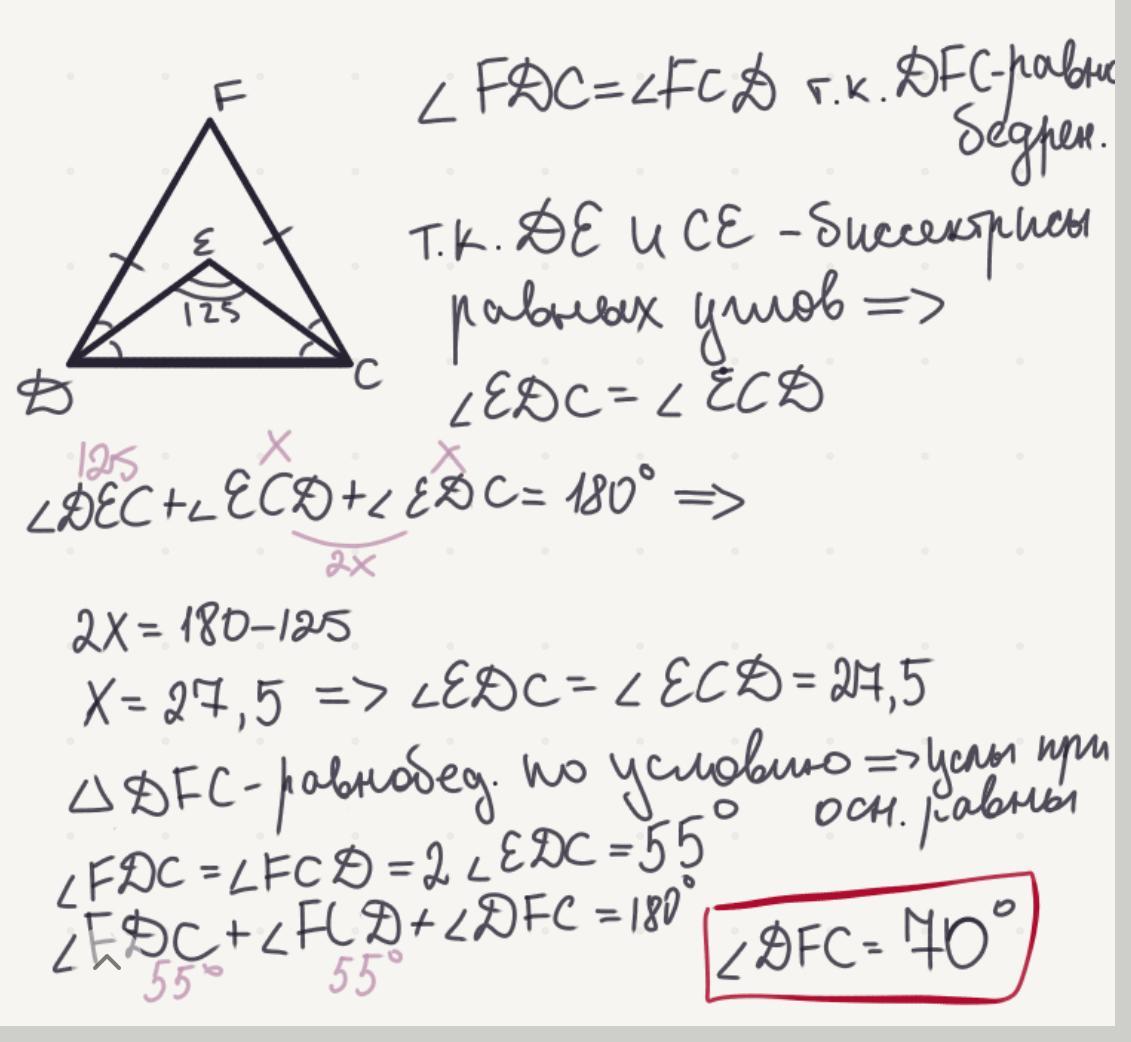 F
E
125
D
C
∠FDC=∠FCD т.к. DFC-равно
бедрен.
т.к. DE и CE - биссектрисы
равных углов =>
∠EDC = ∠ECD
125 x x
∠DEC+∠ECD+∠EDC = 180° =>
2x
2x = 180-125
x = 27,5 => ∠EDC = ∠ECD = 27,5
△DFC - равнобед. по условию => углы при
осн. равны
∠FDC = ∠FCD = 2∠EDC = 55°
∠FDC + ∠FCD + ∠DFC = 180°
55° 55°
∠DFC = 70°